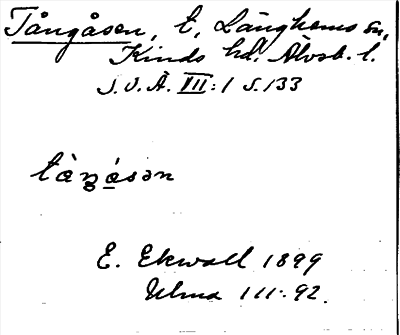 Tångåsen, t, Länghems sn,
Kinds hd. Älvsb. l.
S.O.Ä. VII:1 s.133
tàŋásən
E. Ekwall 1899
Ulma 111:92.